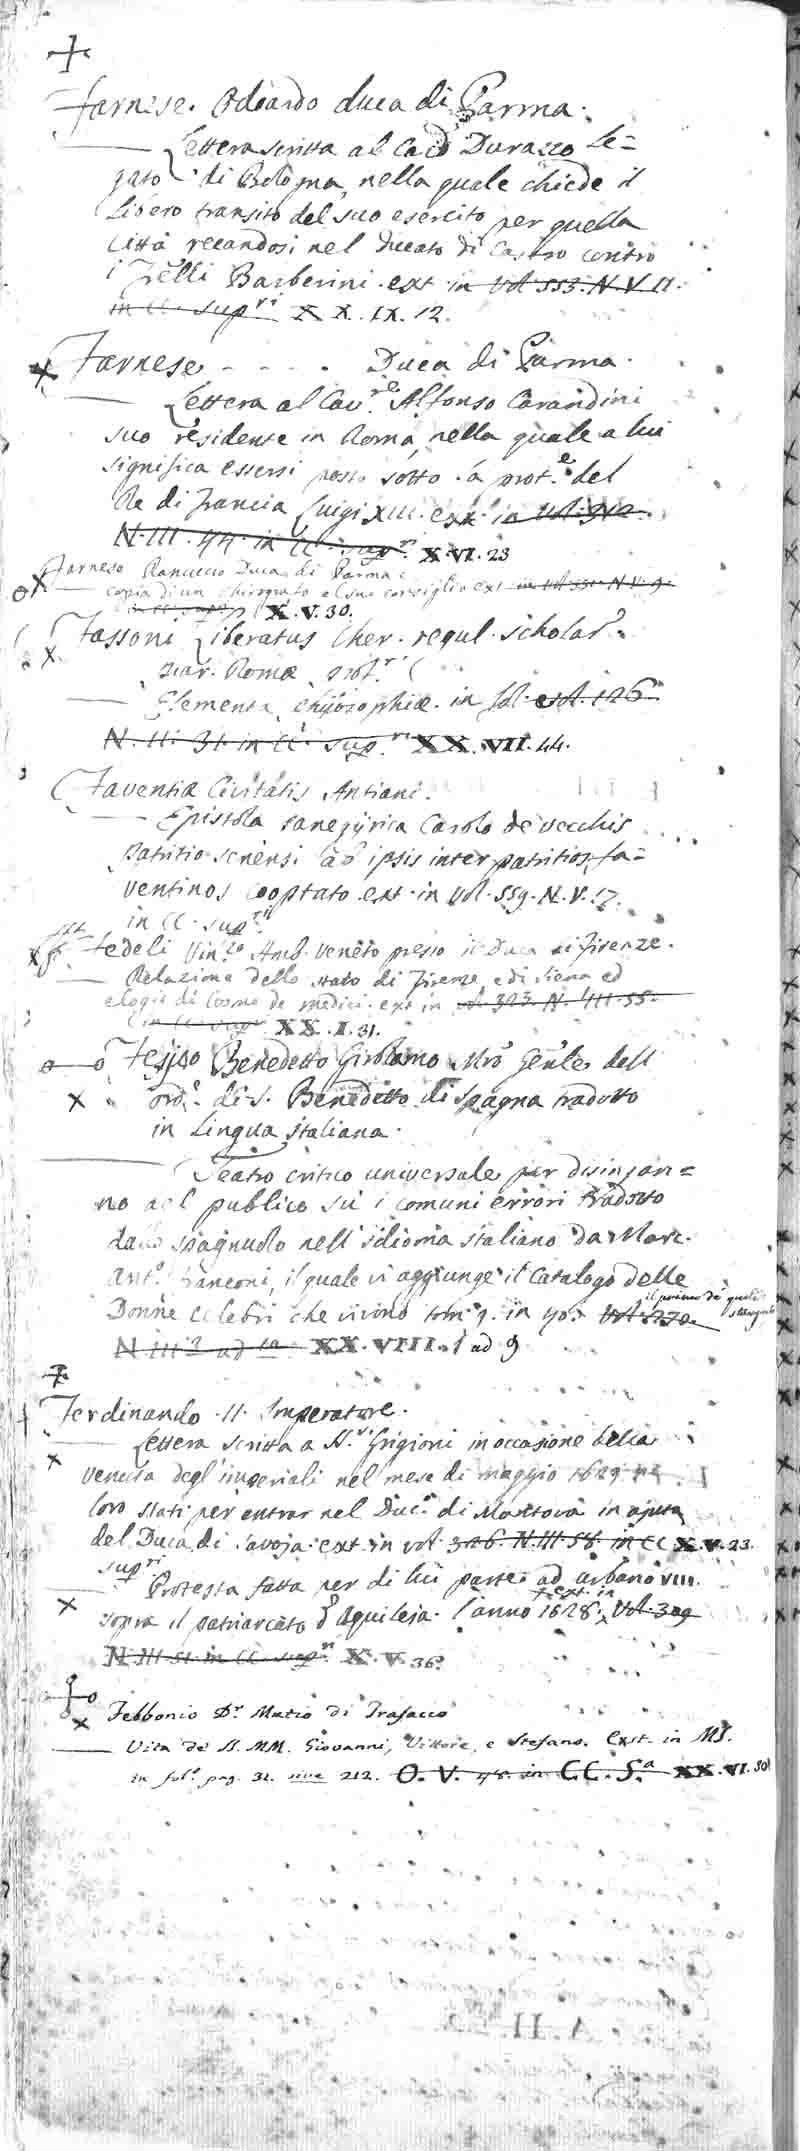 Farnese. Odoardo duca di Parma.
Lettera scritta al Card Durazzo Le=
gato di Bologna, nella quale chiede il
Libero transito del suo esercito per quella
Città recandosi nel Ducato di Castro contro
i Frelli Barberini. ext in Vol 553. N. V. 11.
in CC. supri X X. IX. 12.
Farnese - - - - Duca di Parma.
Lettera al Cav.re Alfonso Carandini
suo residente in Roma, nella quale a lui
significa essersi posto sotto la prot.e del
Re di Francia Luigi XIII. ext. in Vol.
N. III. 44. in CC. supri X. VI. 23
Farnese Ranuccio Duca di Parma
copia di un chirografo al suo consiglio ext in Vol 551. N. V. 9.
in CC. sup X. V. 30.
Fassoni Liberatus Cher. regul. scholar
piar. Romæ prof.r
Elementa philosophiæ. in fol. vol. 126
N. II. 31. in CC. supri XX. VII. 44.
Faventiæ Civitatis Antiani.
Epistola panegirica Carolo de Vecchis
patritio senensi ab ipsis inter patritios fa=
ventinos cooptato. ext. in Vol. 559. N. V. 17.
in CC. supri
Fedeli Vin.zo Amb. Veneto presso il Duca di Firenze.
Relazione dello stato di Firenze, e di Siena ed
elogio di Cosmo de Medici. ext in vol. 323. N. 55.
in CC. supr XX. I. 31.
Feyjoo Benedetto Girolamo Mro Genle dell
ord.e di S. Benedetto di Spagna tradotto
in Lingua Italiana.
Teatro critico universale per disingan=
no del publico su i comuni errori tradotto
dallo spagnuolo nell'idioma italiano da Marc.
Ant.o Franconi, il quale vi aggiunge il Catalogo delle
Donne celebri che vivono tom. 9. in 4o.
il primo de quali
N III XX. VIII. 1 ad 9
Ferdinando II. Imperatore.
Lettera scritta a SS.ri Grigioni in occasione della
venuta degl'imperiali nel mese di maggio 1629 ne
loro stati per entrar nel Duc.o di Mantova in ajuto
del Duca di Savoja. ext. in vol. 326. N. III. 58. in CC X. V. 23.
supri
Protesta fatta per di lui parte ad Urbano VIII.
sopra il patriarcato d'Aquileja. l'anno 1628. ext. in Vol. 309
N III 51 in CC. supri. X. V. 36.
Febbonio Dr. Mutio di Trasacco
Vita de SS. MM. Giovanni, Vittore, e Stefano. Exst. in MS.
in fol.o pag. 31. sive 212. O. V. 48. in CC. S.a XX. VI. 30